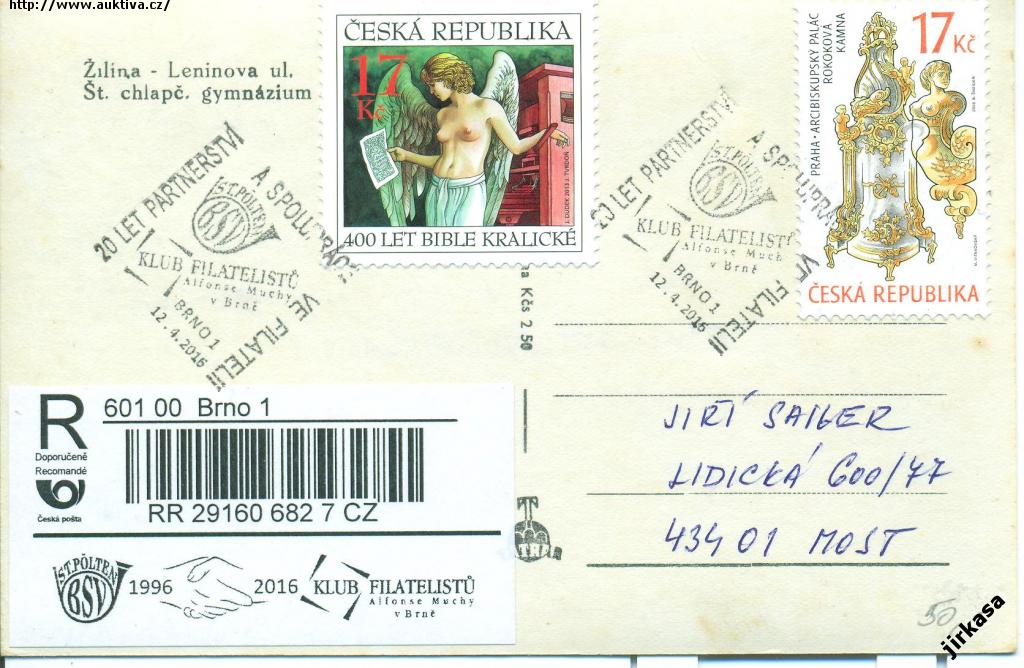 http://www.auktiva.cz/
Žilina - Leninova ul.
Št. chlapč. gymnázium
ČESKÁ REPUBLIKA
17 Kč
J. DUDEK 2013 J. TVRDOŇ
400 LET BIBLE KRALICKÉ
17 Kč
PRAHA - ARCIBISKUPSKÝ PALÁC
ROKOKOVÁ
KAMNA
ČESKÁ REPUBLIKA
20 LET PARTNERSTVÍ
A SPOLUPRÁCE
VE FILATELII
ST. PÖLTEN
BSV
KLUB FILATELISTŮ
Alfonse Muchy
v Brně
BRNO 1
12.4.2016
20 LET PARTNERSTVÍ
A SPOLUPRÁ
VE FILATELII
ST. PÖLTEN
BSV
KLUB FILATELISTŮ
Alfonse Muchy
v Brně
BRNO 1
12.4.2016
Kčs 2 50
R
Doporučeně
Recomandé
Česká pošta
601 00 Brno 1
RR 29160 682 7 CZ
ST. PÖLTEN
BSV
1996
2016
KLUB FILATELISTŮ
Alfonse Muchy
v Brně
JIŘÍ SAILER
LIDICKÁ 600/77
434 01 MOST
50
jirkasa